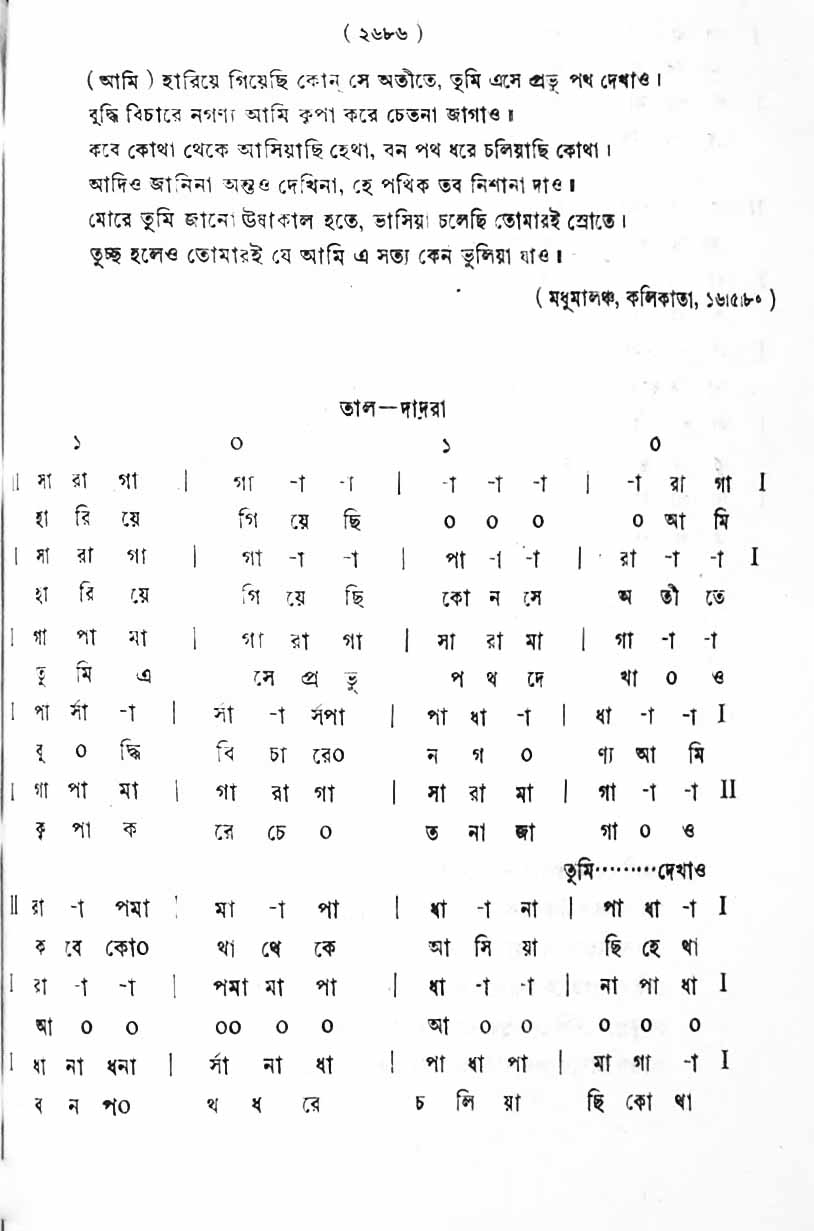 ( ২৬৮৬ )
( আমি ) হারিয়ে গিয়েছি কোন্ সে অতীতে, তুমি এসে প্রভু পথ দেখাও।
বুদ্ধি বিচারে নগণ্য আমি কৃপা করে চেতনা জাগাও॥
কবে কোথা থেকে আসিয়াছি হেথা, বন পথ ধরে চলিয়াছি কোথা।
আদিও জানিনা অন্তও দেখিনা, হে পথিক তব নিশানা দাও॥
মোরে তুমি জানো উষাকাল হতে, ভাসিয়া চলেছি তোমারই স্রোতে।
তুচ্ছ হলেও তোমারই যে আমি এ সত্য কেন ভুলিয়া যাও॥
( মধুমালঞ্চ, কলিকাতা, ১৬।৫।৮০ )
তাল—দাদরা
১ ০ ১ ০
II সা রা গা | গা -া -া | -া -া -া | -া রা গা I
হা রি য়ে গি য়ে ছি ০ ০ ০ ০ আ মি
I সা রা গা | গা -া -া | পা -া -া | রা -া -া I
হা রি য়ে গি য়ে ছি কো ন সে অ তী তে
I গা পা মা | গা রা গা | সা রা মা | গা -া -া
তু মি এ সে প্র ভু প থ দে খা ০ ও
I পা র্সা -া | র্সা -া র্সপা | পা ধা -া | ধা -া -া I
বু ০ দ্ধি বি চা রে০ ন গ ০ ণ্য আ মি
I গা পা মা | গা রা গা | সা রা মা | গা -া -া II
কৃ পা ক রে চে ০ ত না জা গা ০ ও
তুমি·········দেখাও
II রা -া পমা | মা -া পা | ধা -া না | পা ধা -া I
ক বে কো০ থা থে কে আ সি য়া ছি হে থা
I রা -া -া | পমা মা পা | ধা -া -া | না পা ধা I
আ ০ ০ ০০ ০ ০ আ ০ ০ ০ ০ ০
I ধা না ধনা | র্সা না ধা | পা ধা পা | মা গা -া I
ব ন প০ থ ধ রে চ লি য়া ছি কো থা